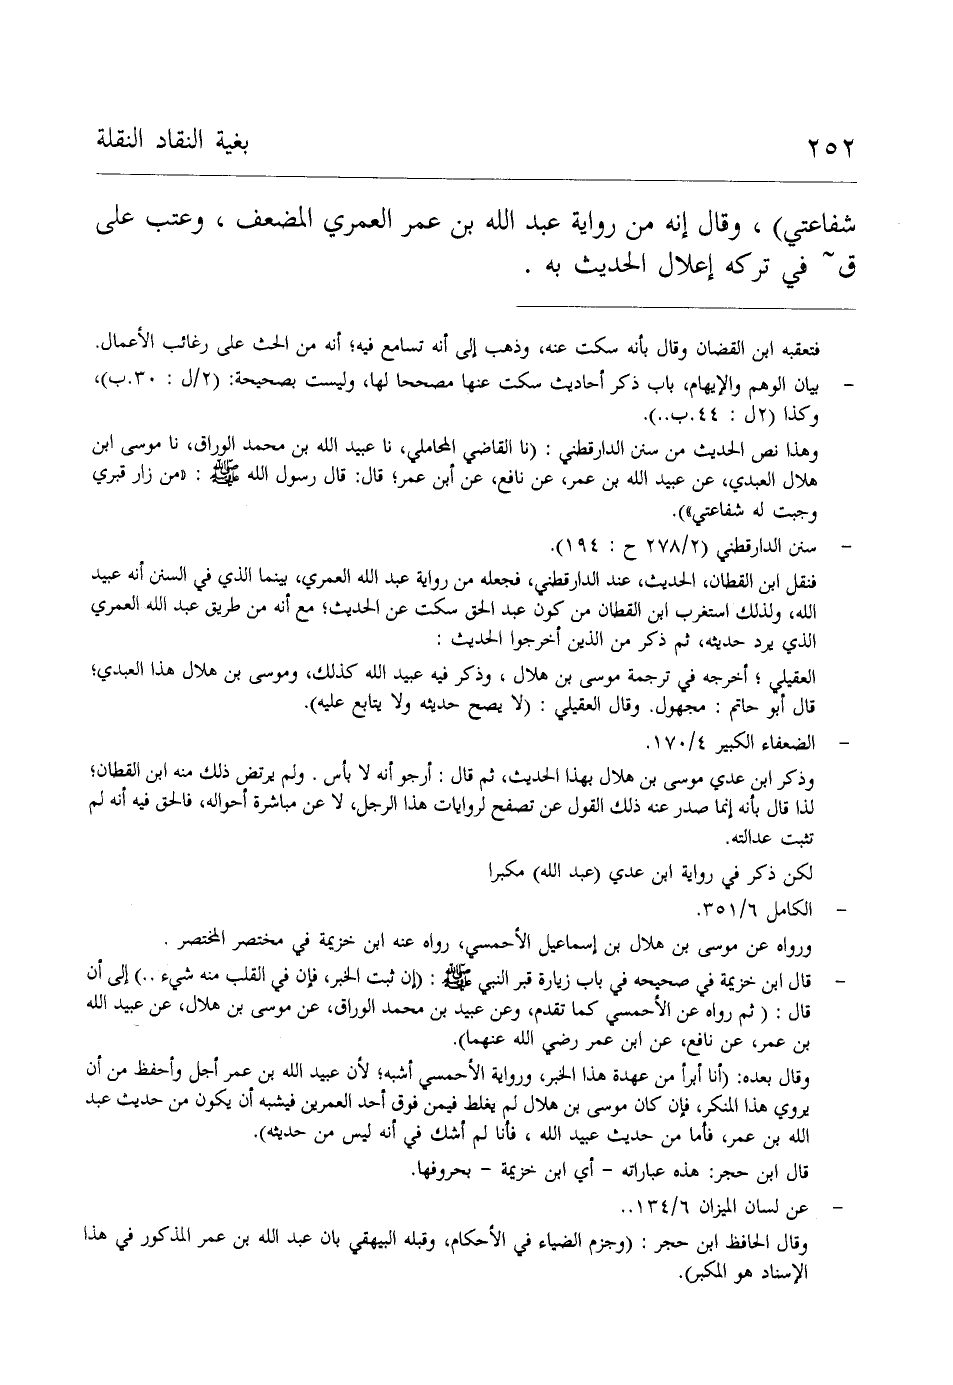 ٢٥٢ بغية النقاد النقلة
شفاعتي) ، وقال إنه من رواية عبد الله بن عمر العمري المضعف ، وعتب على
ق~ في تركه إعلال الحديث به .
فتعقبه ابن القضان وقال بأنه سكت عنه، وذهب إلى أنه تسامع فيه؛ أنه من الحث على رغائب الأعمال.
- بيان الوهم والإيهام، باب ذكر أحاديث سكت عنها مصححا لها، وليست بصحيحة: (٢/ل : ٣٠.ب)،
وكذا (٢ل : ٤٤.ب..).
وهذا نص الحديث من سنن الدارقطني : (نا القاضي المحاملي، نا عبيد الله بن محمد الوراق، نا موسى ابن
هلال العبدي، عن عبيد الله بن عمر، عن نافع، عن أبن عمر؛ قال: قال رسول الله ﷺ : «من زار قبري
وجبت له شفاعتي»).
- سنن الدارقطني (٢٧٨/٢ ح : ١٩٤).
فنقل ابن القطان، الحديث، عند الدارقطني، فجعله من رواية عبد الله العمري، بينما الذي في السنن أنه عبيد
الله، ولذلك استغرب ابن القطان من كون عبد الحق سكت عن الحديث؛ مع أنه من طريق عبد الله العمري
الذي يرد حديثه، ثم ذكر من الذين أخرجوا الحديث :
العقيلي ؛ أخرجه في ترجمة موسى بن هلال ، وذكر فيه عبيد الله كذلك، وموسى بن هلال هذا العبدي؛
قال أبو حاتم : مجهول. وقال العقيلي : (لا يصح حديثه ولا يتابع عليه).
- الضعفاء الكبير ١٧٠/٤.
وذكر ابن عدي موسى بن هلال بهذا الحديث، ثم قال : أرجو أنه لا بأس . ولم يرتض ذلك منه ابن القطان؛
لذا قال بأنه إنما صدر عنه ذلك القول عن تصفح لروايات هذا الرجل، لا عن مباشرة أحواله، فالحق فيه أنه لم
تثبت عدالته.
لكن ذكر في رواية ابن عدي (عبد الله) مكبرا
- الكامل ٣٥١/٦.
ورواه عن موسى بن هلال بن إسماعيل الأحمسي، رواه عنه ابن خزيمة في مختصر المختصر .
- قال ابن خزيمة في صحيحه في باب زيارة قبر النبي ﷺ : (إن ثبت الخبر، فإن في القلب منه شيء ..) إلى أن
قال : ( ثم رواه عن الأحمسي كما تقدم، وعن عبيد بن محمد الوراق، عن موسى بن هلال، عن عبيد الله
بن عمر، عن نافع، عن ابن عمر رضي الله عنهما).
وقال بعده: (أنا أبرأ من عهدة هذا الخبر، ورواية الأحمسي أشبه؛ لأن عبيد الله بن عمر أجل وأحفظ من أن
يروي هذا المنكر، فإن كان موسى بن هلال لم يغلط فيمن فوق أحد العمرين فيشبه أن يكون من حديث عبد
الله بن عمر، فأما من حديث عبيد الله ، فأنا لم أشك في أنه ليس من حديثه).
قال ابن حجر: هذه عباراته - أي ابن خزيمة - بحروفها.
- عن لسان الميزان ١٣٤/٦..
وقال الحافظ ابن حجر : (وجزم الضياء في الأحكام، وقبله البيهقي بان عبد الله بن عمر المذكور في هذا
الإسناد هو المكبر).